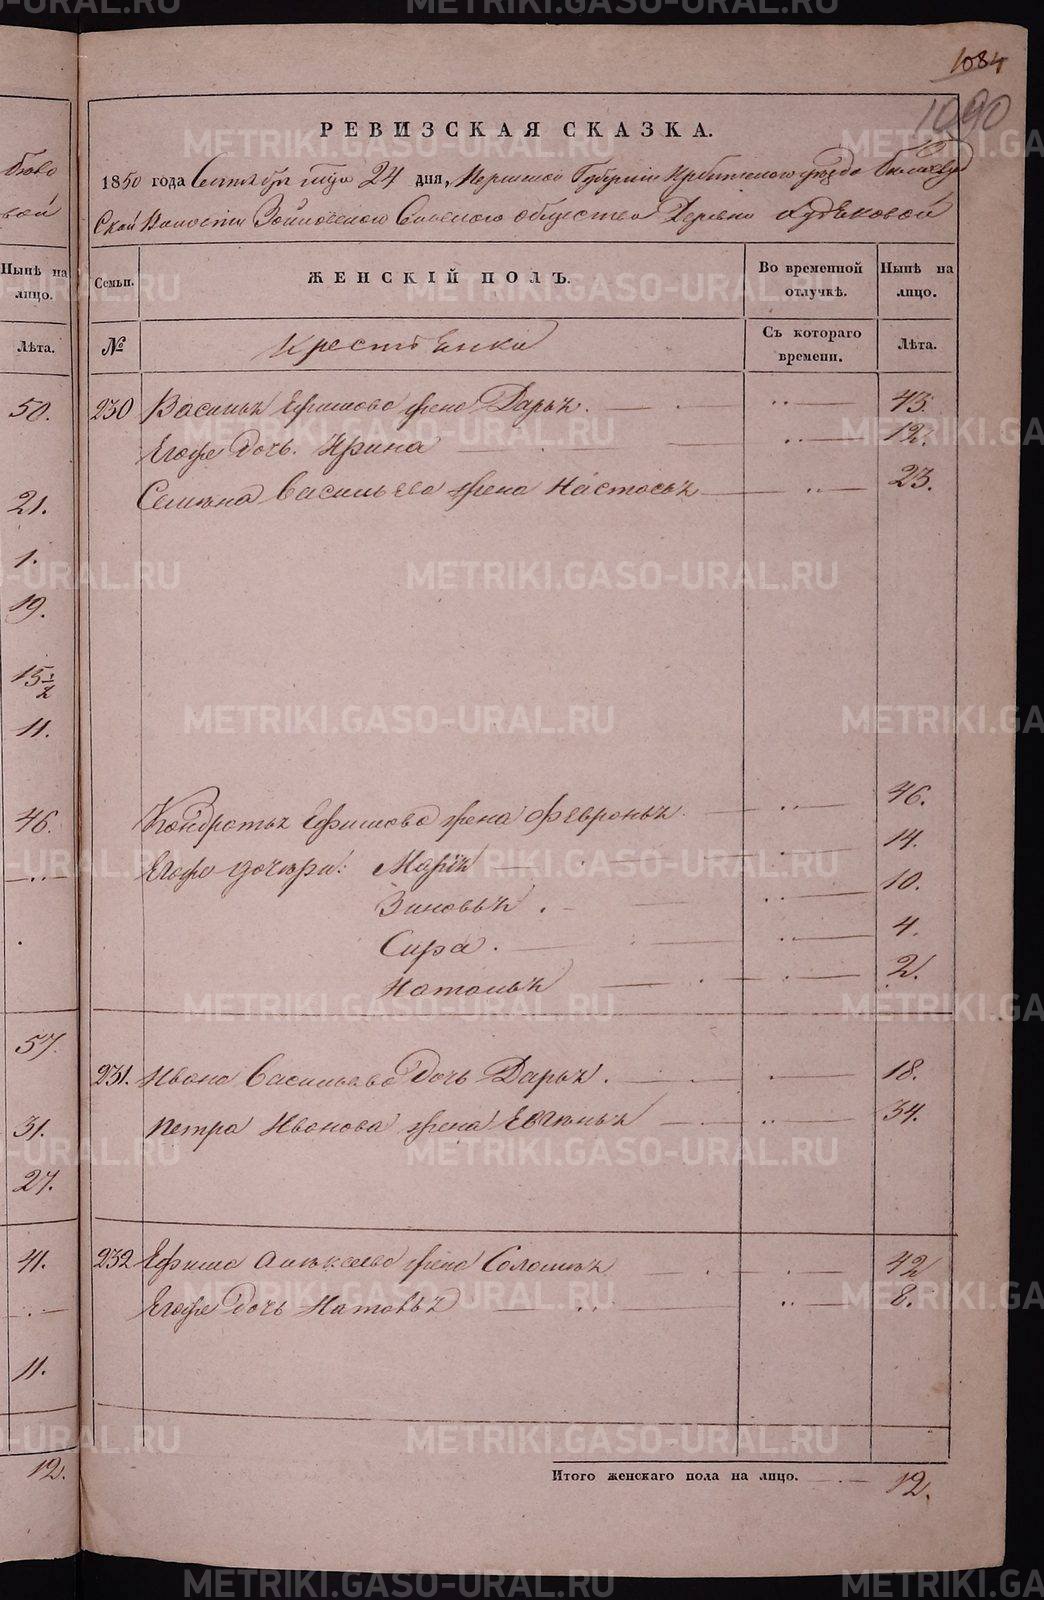 1084
1090
РЕВИЗСКАЯ СКАЗКА.
1850 года Сентября мца 24 дня, Пермской Губернии Ирбитского уезда
ской Волости Сельского общества Деревни
Семьи. ЖЕНСКІЙ ПОЛЪ. Во временной отлучкѣ. Нынѣ на лицо.
№ Крестьянки Съ котораго времени. Лѣта.
230 Василья Ефимова жена Дарья. 43.
Егоже дочь Ирина 12.
Семена Васильева жена Настасья 23.
Кондратья Ефимова жена Февронья 46.
Егоже дочери: Марья 14.
Зиновья 10.
Сира. 4.
Наталья 2.
231. Ивана Васильева дочь Дарья. 18.
Петра Иванова жена Евгенья 34.
232 Ефима Алексеева жена Соломея 42
Егоже дочь 8.
Итого женскаго пола на лицо. 12.
бово
вой
Нынѣ на лицо.
Лѣта.
50.
21.
1.
19.
15 1/2
11.
46.
57.
31.
27.
41.
11.
12.
METRIKI.GASO-URAL.RU